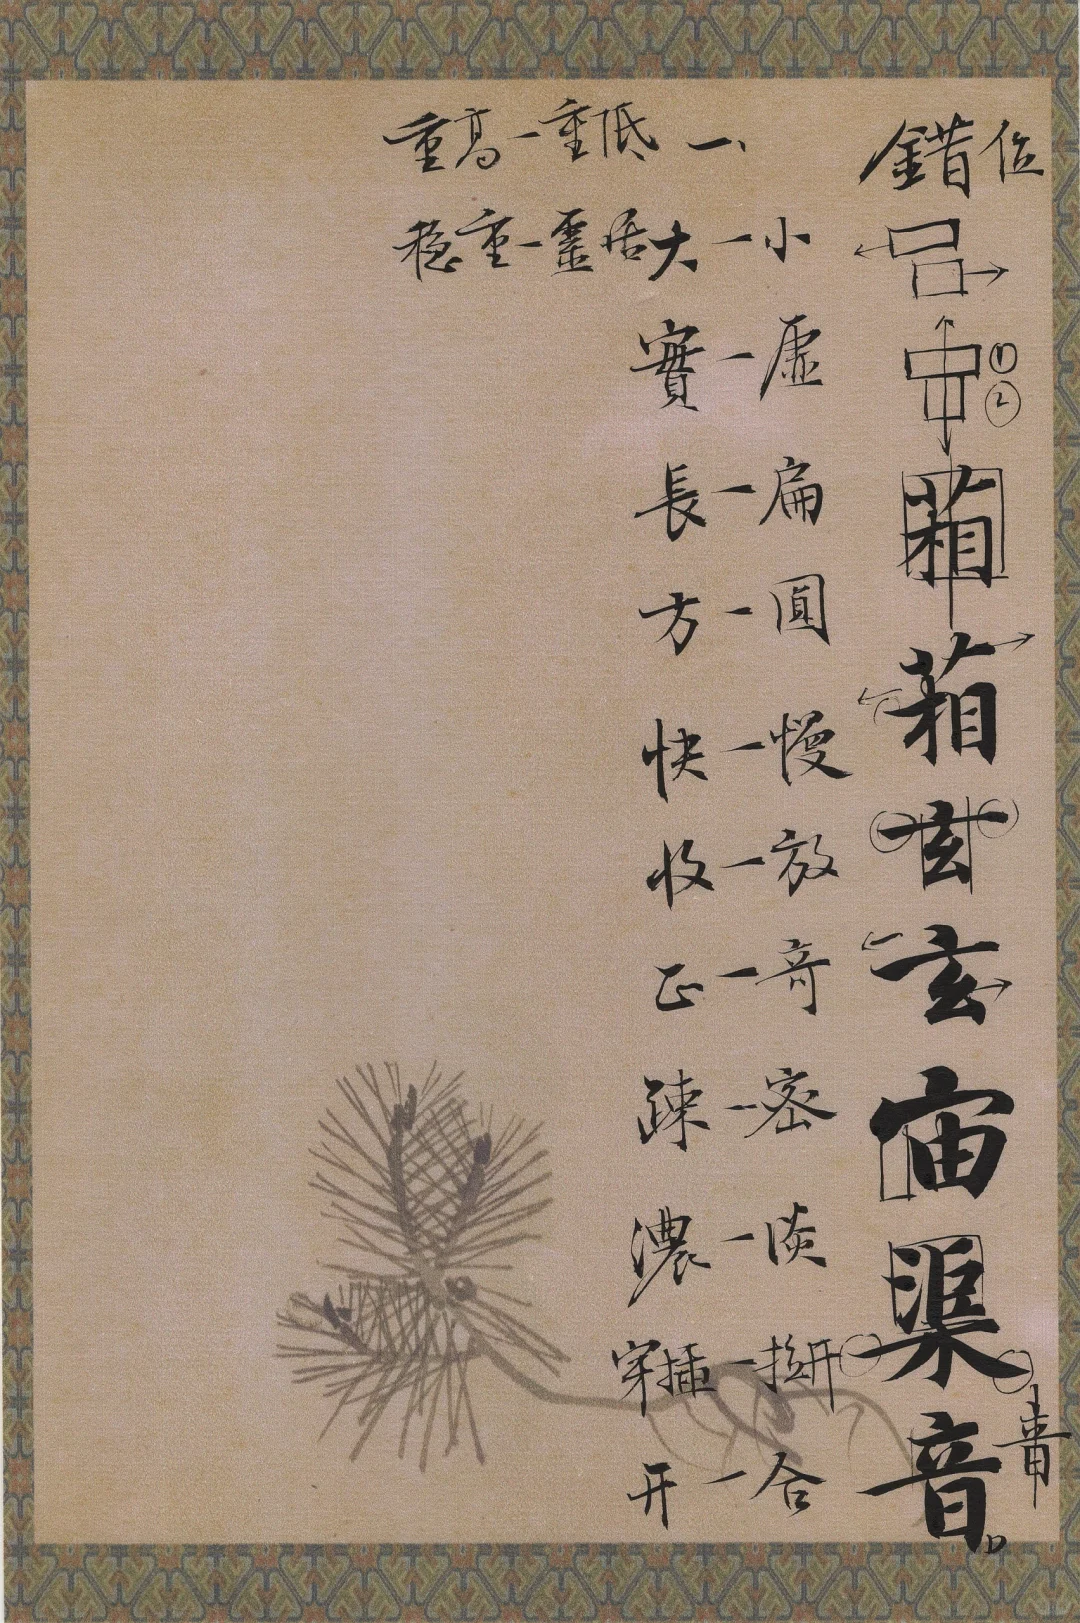 錯位
① ②
葙
葙
玄
玄
宙
渠
音
音
大一小
實一虛
長一扁
方一圓
快一慢
收一放
正一奇
疎一密
濃一淡
穿插一拗开
开一合
重高一重低 一、
穩重一靈活